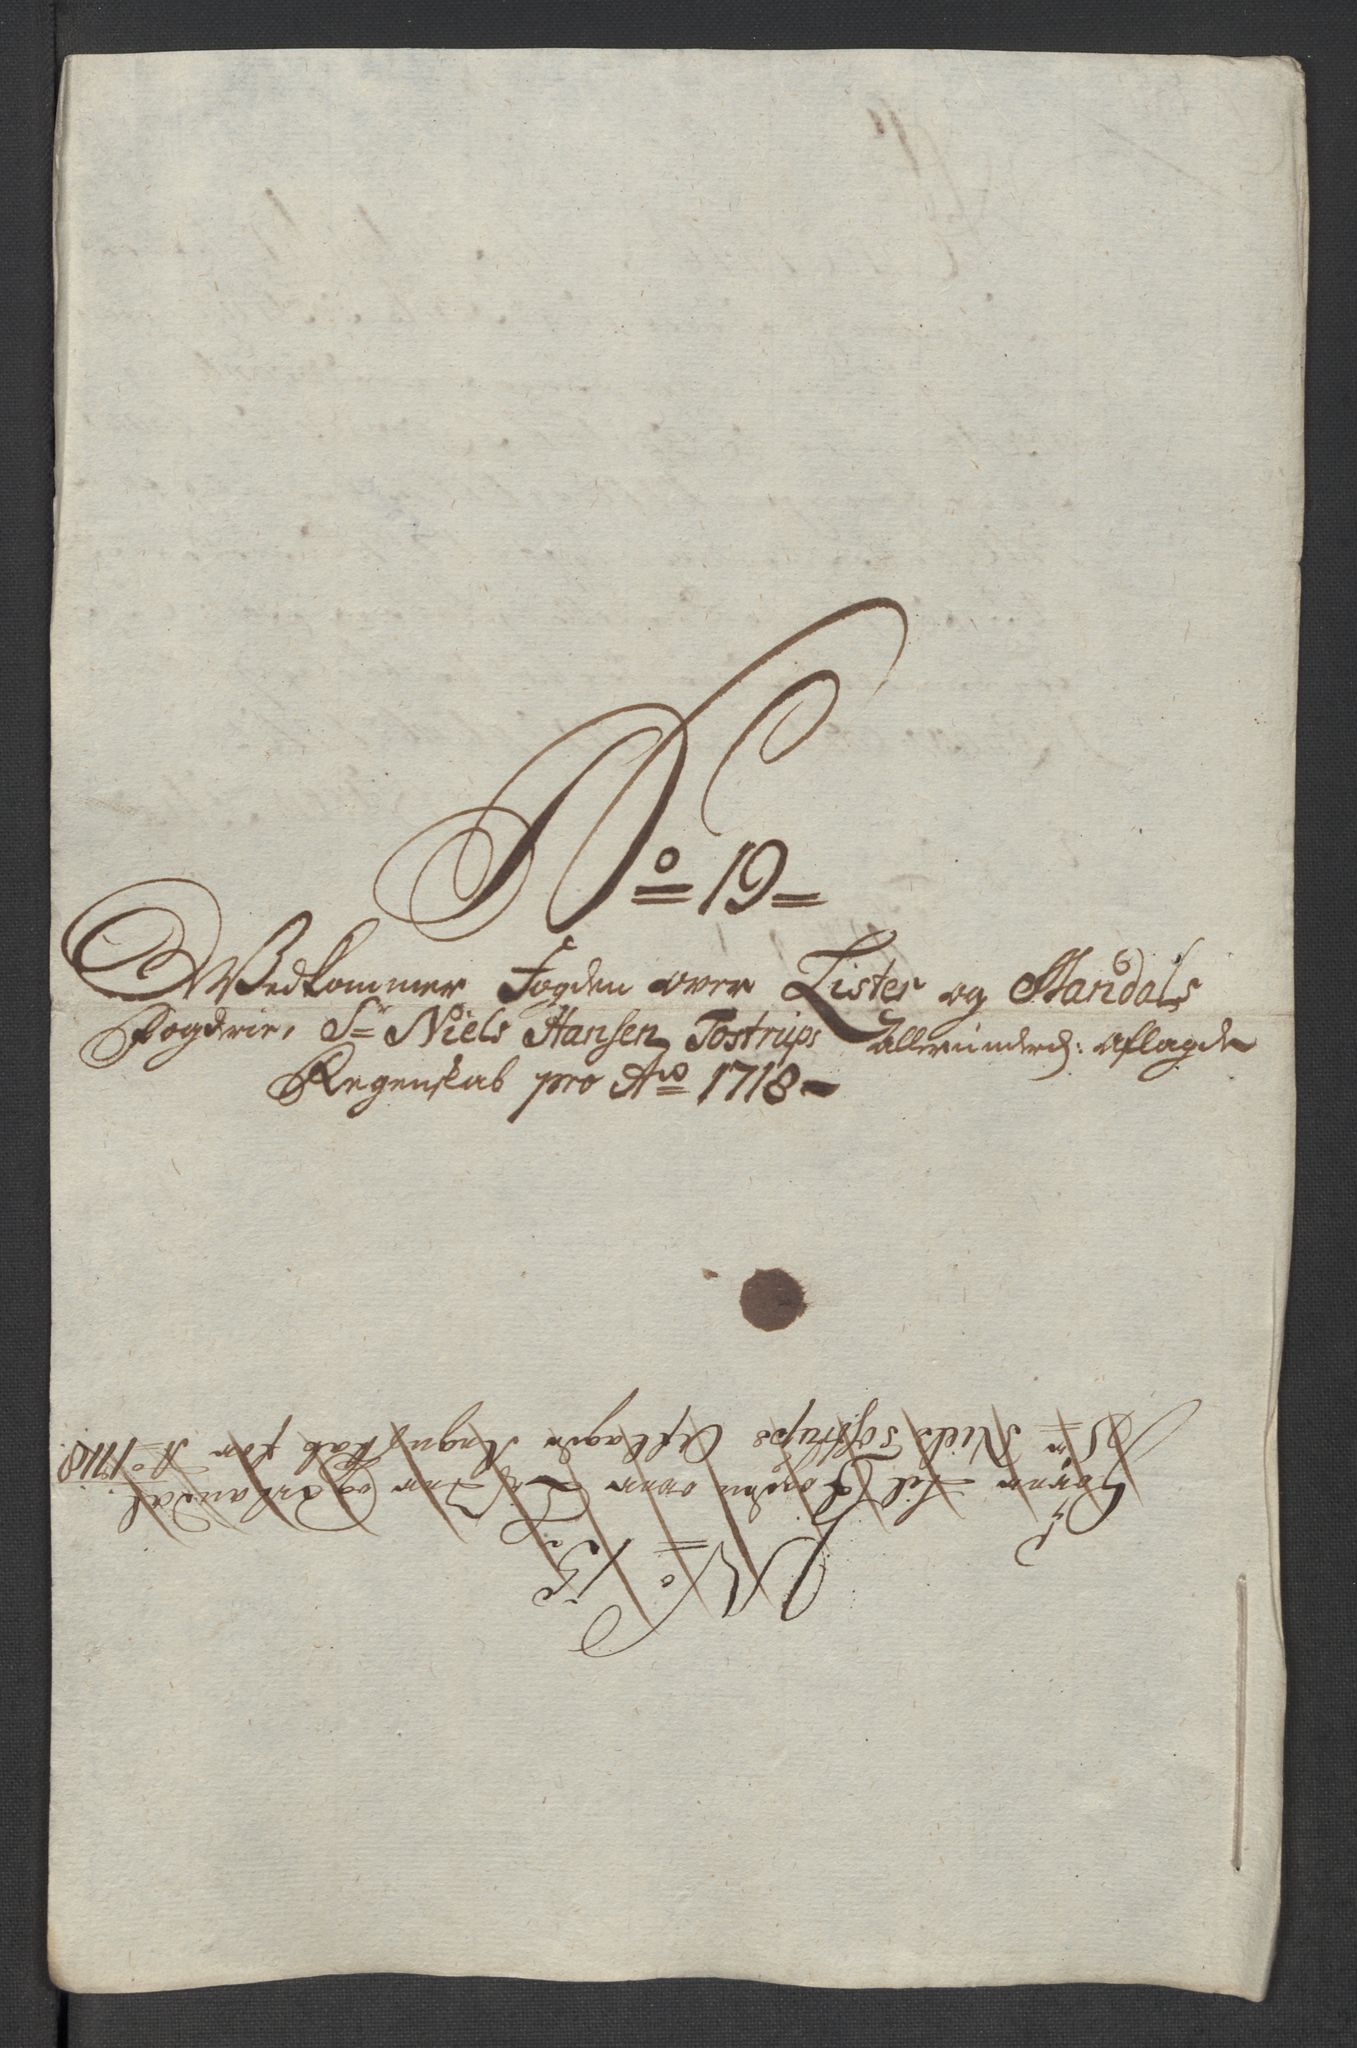 No 19
Vedkommer Fogden over Lister og Mandals
Fogderie, Sr Niels Hansen Tostrups Allerunderd: aflagde
Regenskab pro Ao 1718
No 15
Hører til Fogden over Lister og Mandal
Sr Niels Tostrups Aflagde Regnskab for Ao 1718